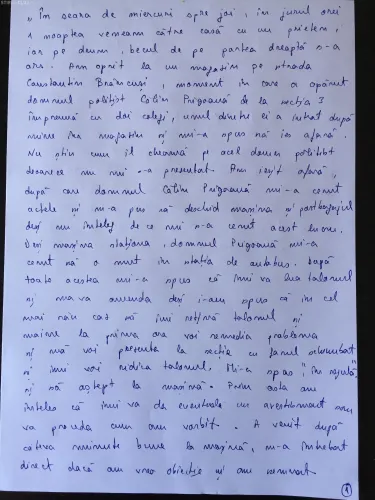 „ În seara de miercuri spre joi , în jurul orei
1 noaptea veneam către casă cu un prieten ,
iar pe drum , becul de pe partea dreaptă s-a
ars . Am oprit la un magazin pe strada
Constantin Brâncuși , moment în care a apărut
domnul polițist Călin Prigoană de la secția 3
împreună cu doi colegi , unul dintre ei a intrat după
mine în magazin și mi-a spus să ies afară .
Nu știu cum îl cheamă pe acel domn polițist
deoarece nu mi s-a prezentat . Am ieșit afară ,
după care domnul Călin Prigoană mi-a cerut
actele și m-a pus să deschid mașina și portbagajul
deși nu înțeleg de ce mi s-a cerut acest lucru .
Deși mașina staționa , domnul Prigoană mi-a
cerut să o mut în stația de autobus . După
toate acestea mi-a spus că îmi va lua talonul
și mă va amenda deși i-am spus ca în cel
mai rău caz să îmi rețină talonul și
mâine la prima oră voi remedia problema
și mă voi prezenta la secție cu farul schimbat
și îmi voi ridica talonul . Mi-a spus "în regulă"
și să aștept la mașină . Prin asta am
înțeles că îmi va da eventual un avertisment sau
va proceda cum am vorbit . A venit după
câteva minute bune la mașină , m-a întrebat
direct dacă am vreo obiecție și am remarcat
1